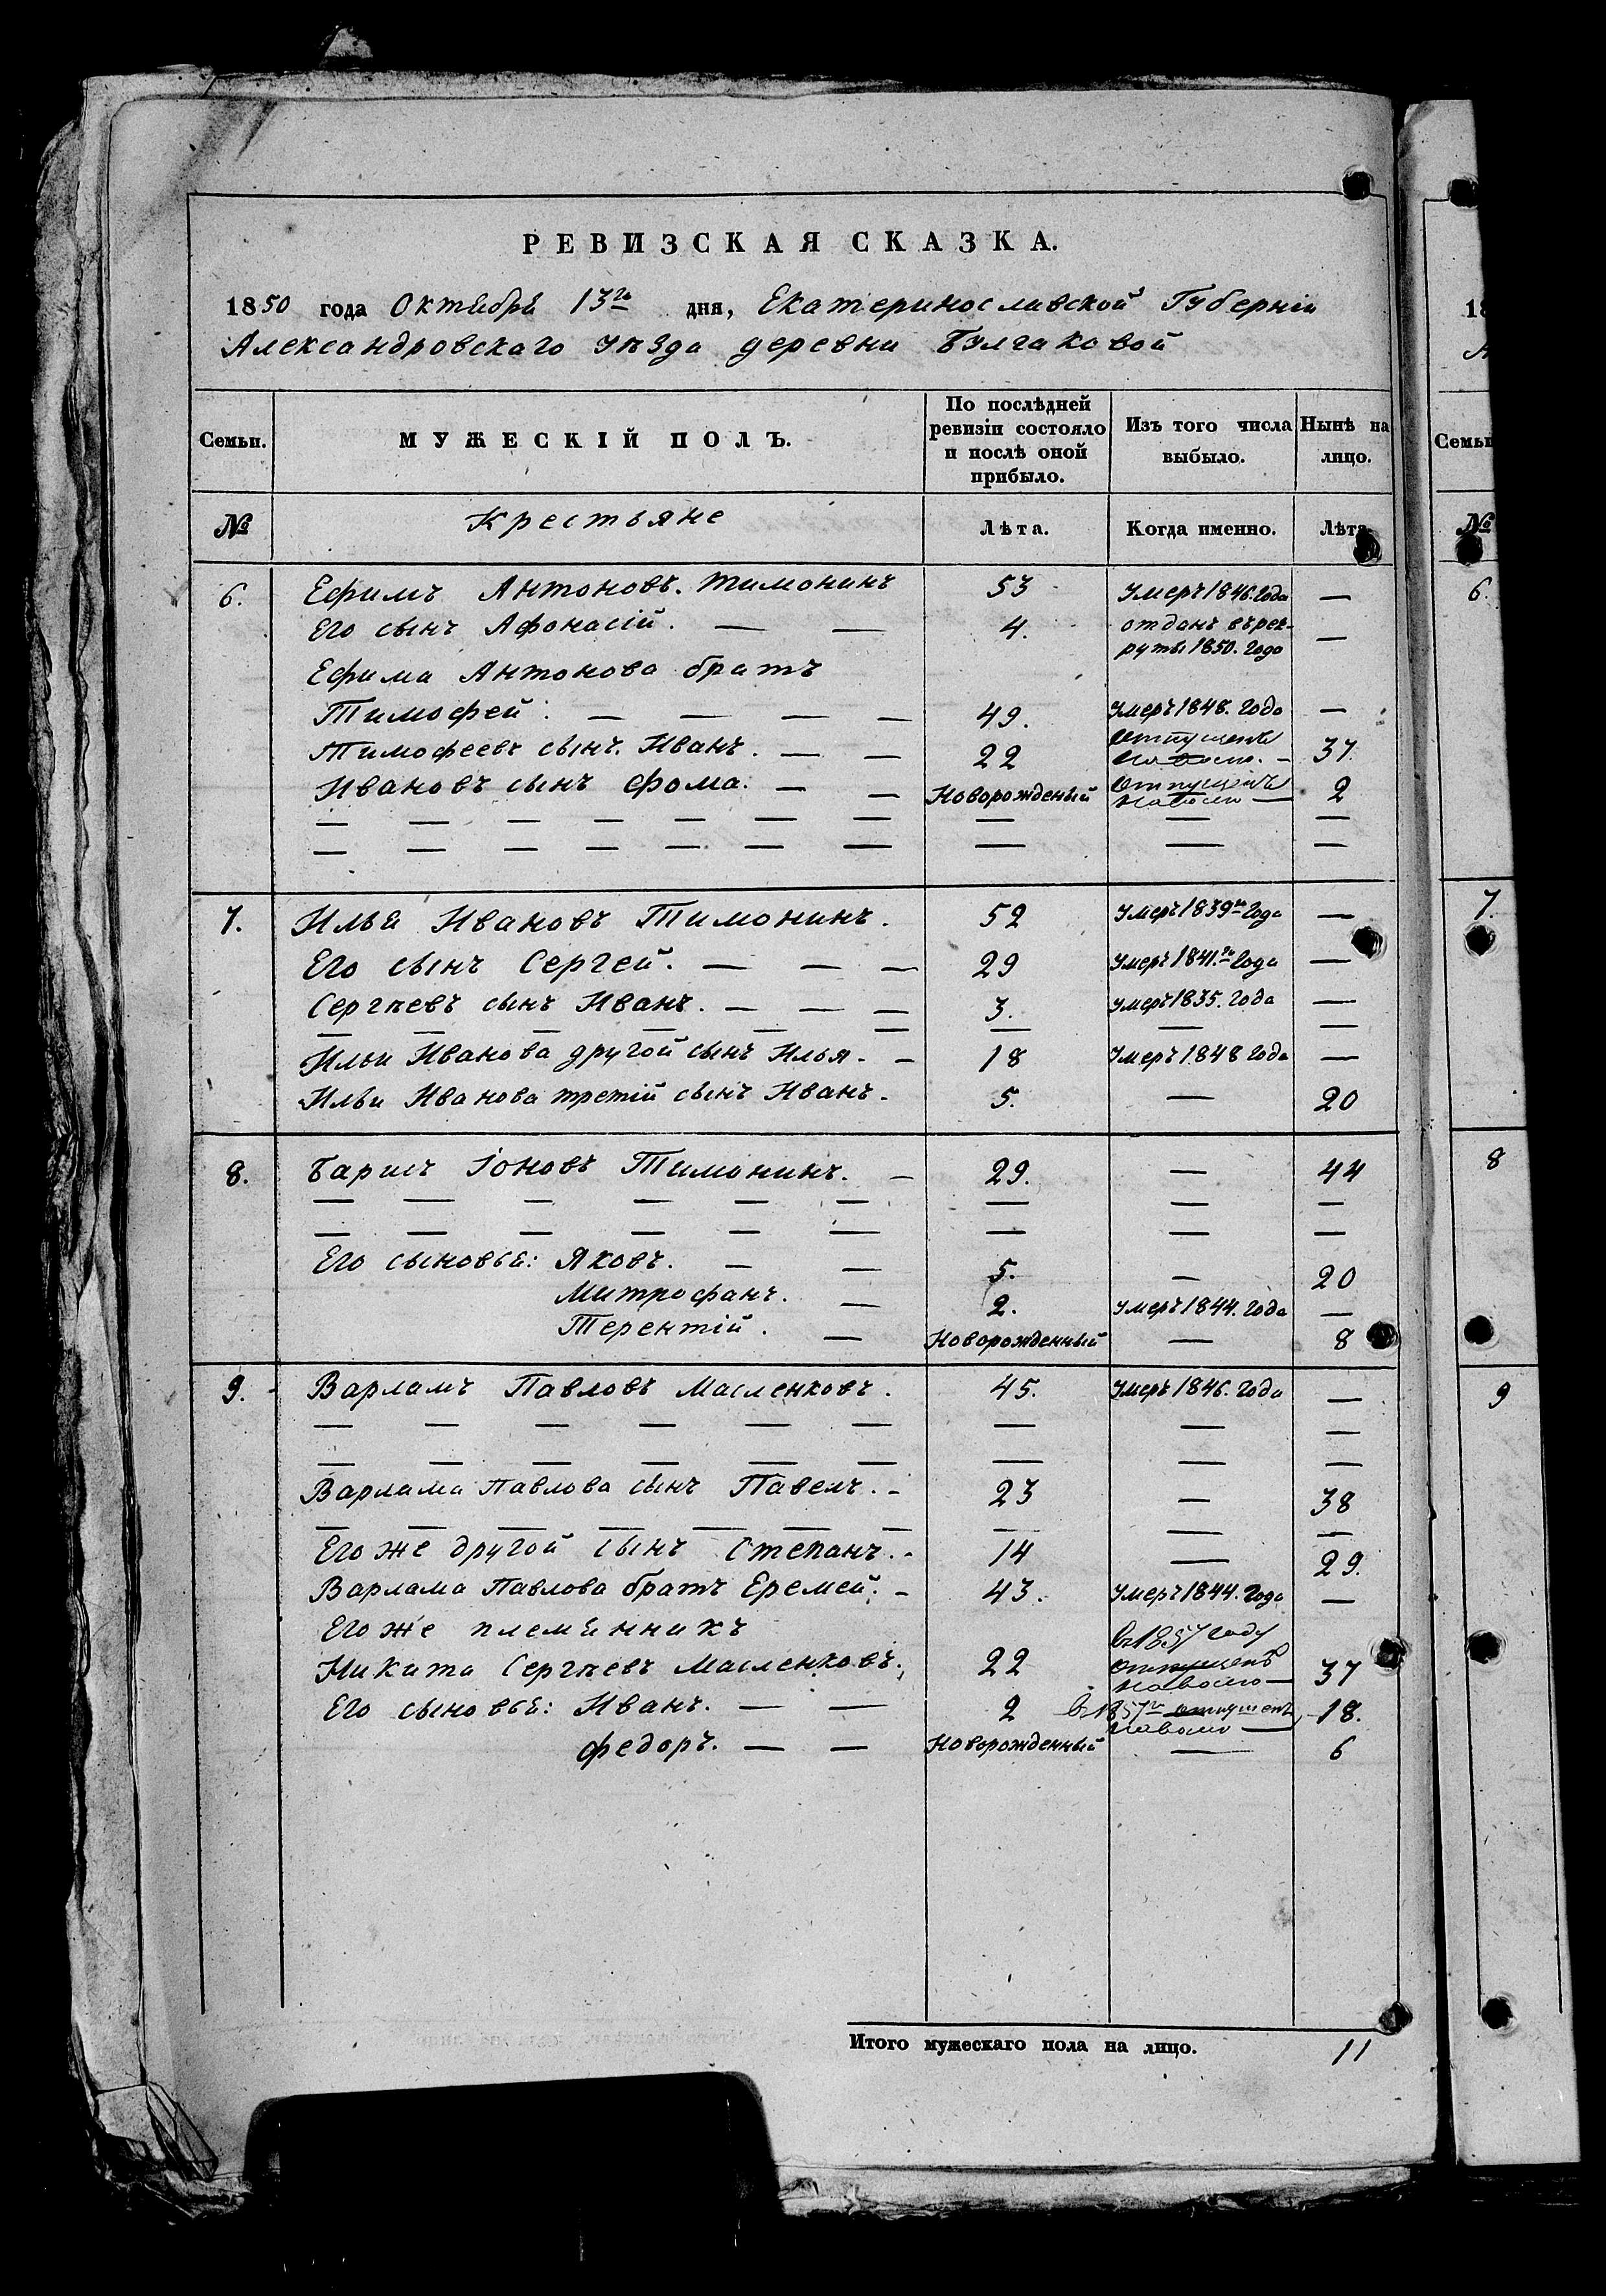 РЕВИЗСКАЯ СКАЗКА.
1850 года Октября 13го дня, Екатеринославской Губерніи
Александровскаго уѣзда деревни Булгаковой
Семьи. МУЖЕСКІЙ ПОЛЪ. По послѣдней ревизіи состояло и послѣ оной прибыло. Изъ того числа выбыло. Нынѣ на лицо.
№ Крестьяне Лѣта. Когда именно. Лѣта
6. Ефимъ Антоновъ. Тимонинъ 53 Умеръ 1846. года —
Его сынъ Афонасій. — — 4. отданъ въ рек-
руты 1850. года —
Ефима Антонова братъ
Тимофей. — — — — 49. Умеръ 1848. года —
Тимофеевъ сынъ. Иванъ. — — 22 отпущенъ
на волю. — 37.
Ивановъ сынъ Фома. — — Новорожденый отпущенъ
на волю — 2
— — — — — — — — — —
— — — — — — — — — —
7. Илья Ивановъ Тимонинъ. 52 Умеръ 1839го года —
Его сынъ Сергей. — — — 29 Умеръ 1841.го года —
Сергѣевъ сынъ Иванъ. — — — 3. умеръ 1835. года —
— — — — — — — — —
Ильи Иванова другой сынъ Илья. — 18 Умеръ 1848 года —
Ильи Иванова третій сынъ Иванъ. 5. — 20
8. Барисъ Іоновъ Тимонинъ. — 29. — 44
— — — — — — — — —
— — — — — — — — —
Его сыновья: Яковъ. — — 5. — 20
Митрофанъ. — 2. Умеръ 1844. года —
Терентій. — Новорожденный — 8
9. Варламъ Павловъ Масленковъ. 45. Умеръ 1846. года —
— — — — — — — — —
— — — — — — — — —
Варлама Павлова сынъ Павелъ. - 23 — 38
— — — — — — — — — —
Его же другой сынъ Степанъ. - 14 — 29.
Варлама Павлова братъ Еремей. - 43. Умеръ 1844. года —
Его же племянникъ
Никита Сергѣевъ Масленковъ. 22 въ 1857 году
отпущенъ
на волю — 37
Его сыновья: Иванъ. — — 2 въ 1857го отпущенъ
на волю — 18.
Федоръ. — — Новорожденный — 6
Итого мужескаго пола на лицо. 11
18
А
Семьи
№
6.
7.
8
9